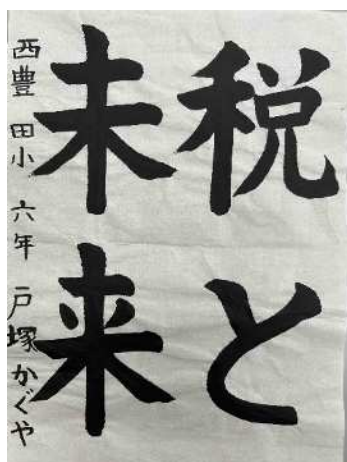 税と
未来
西豊田小 六年 戸塚かぐや